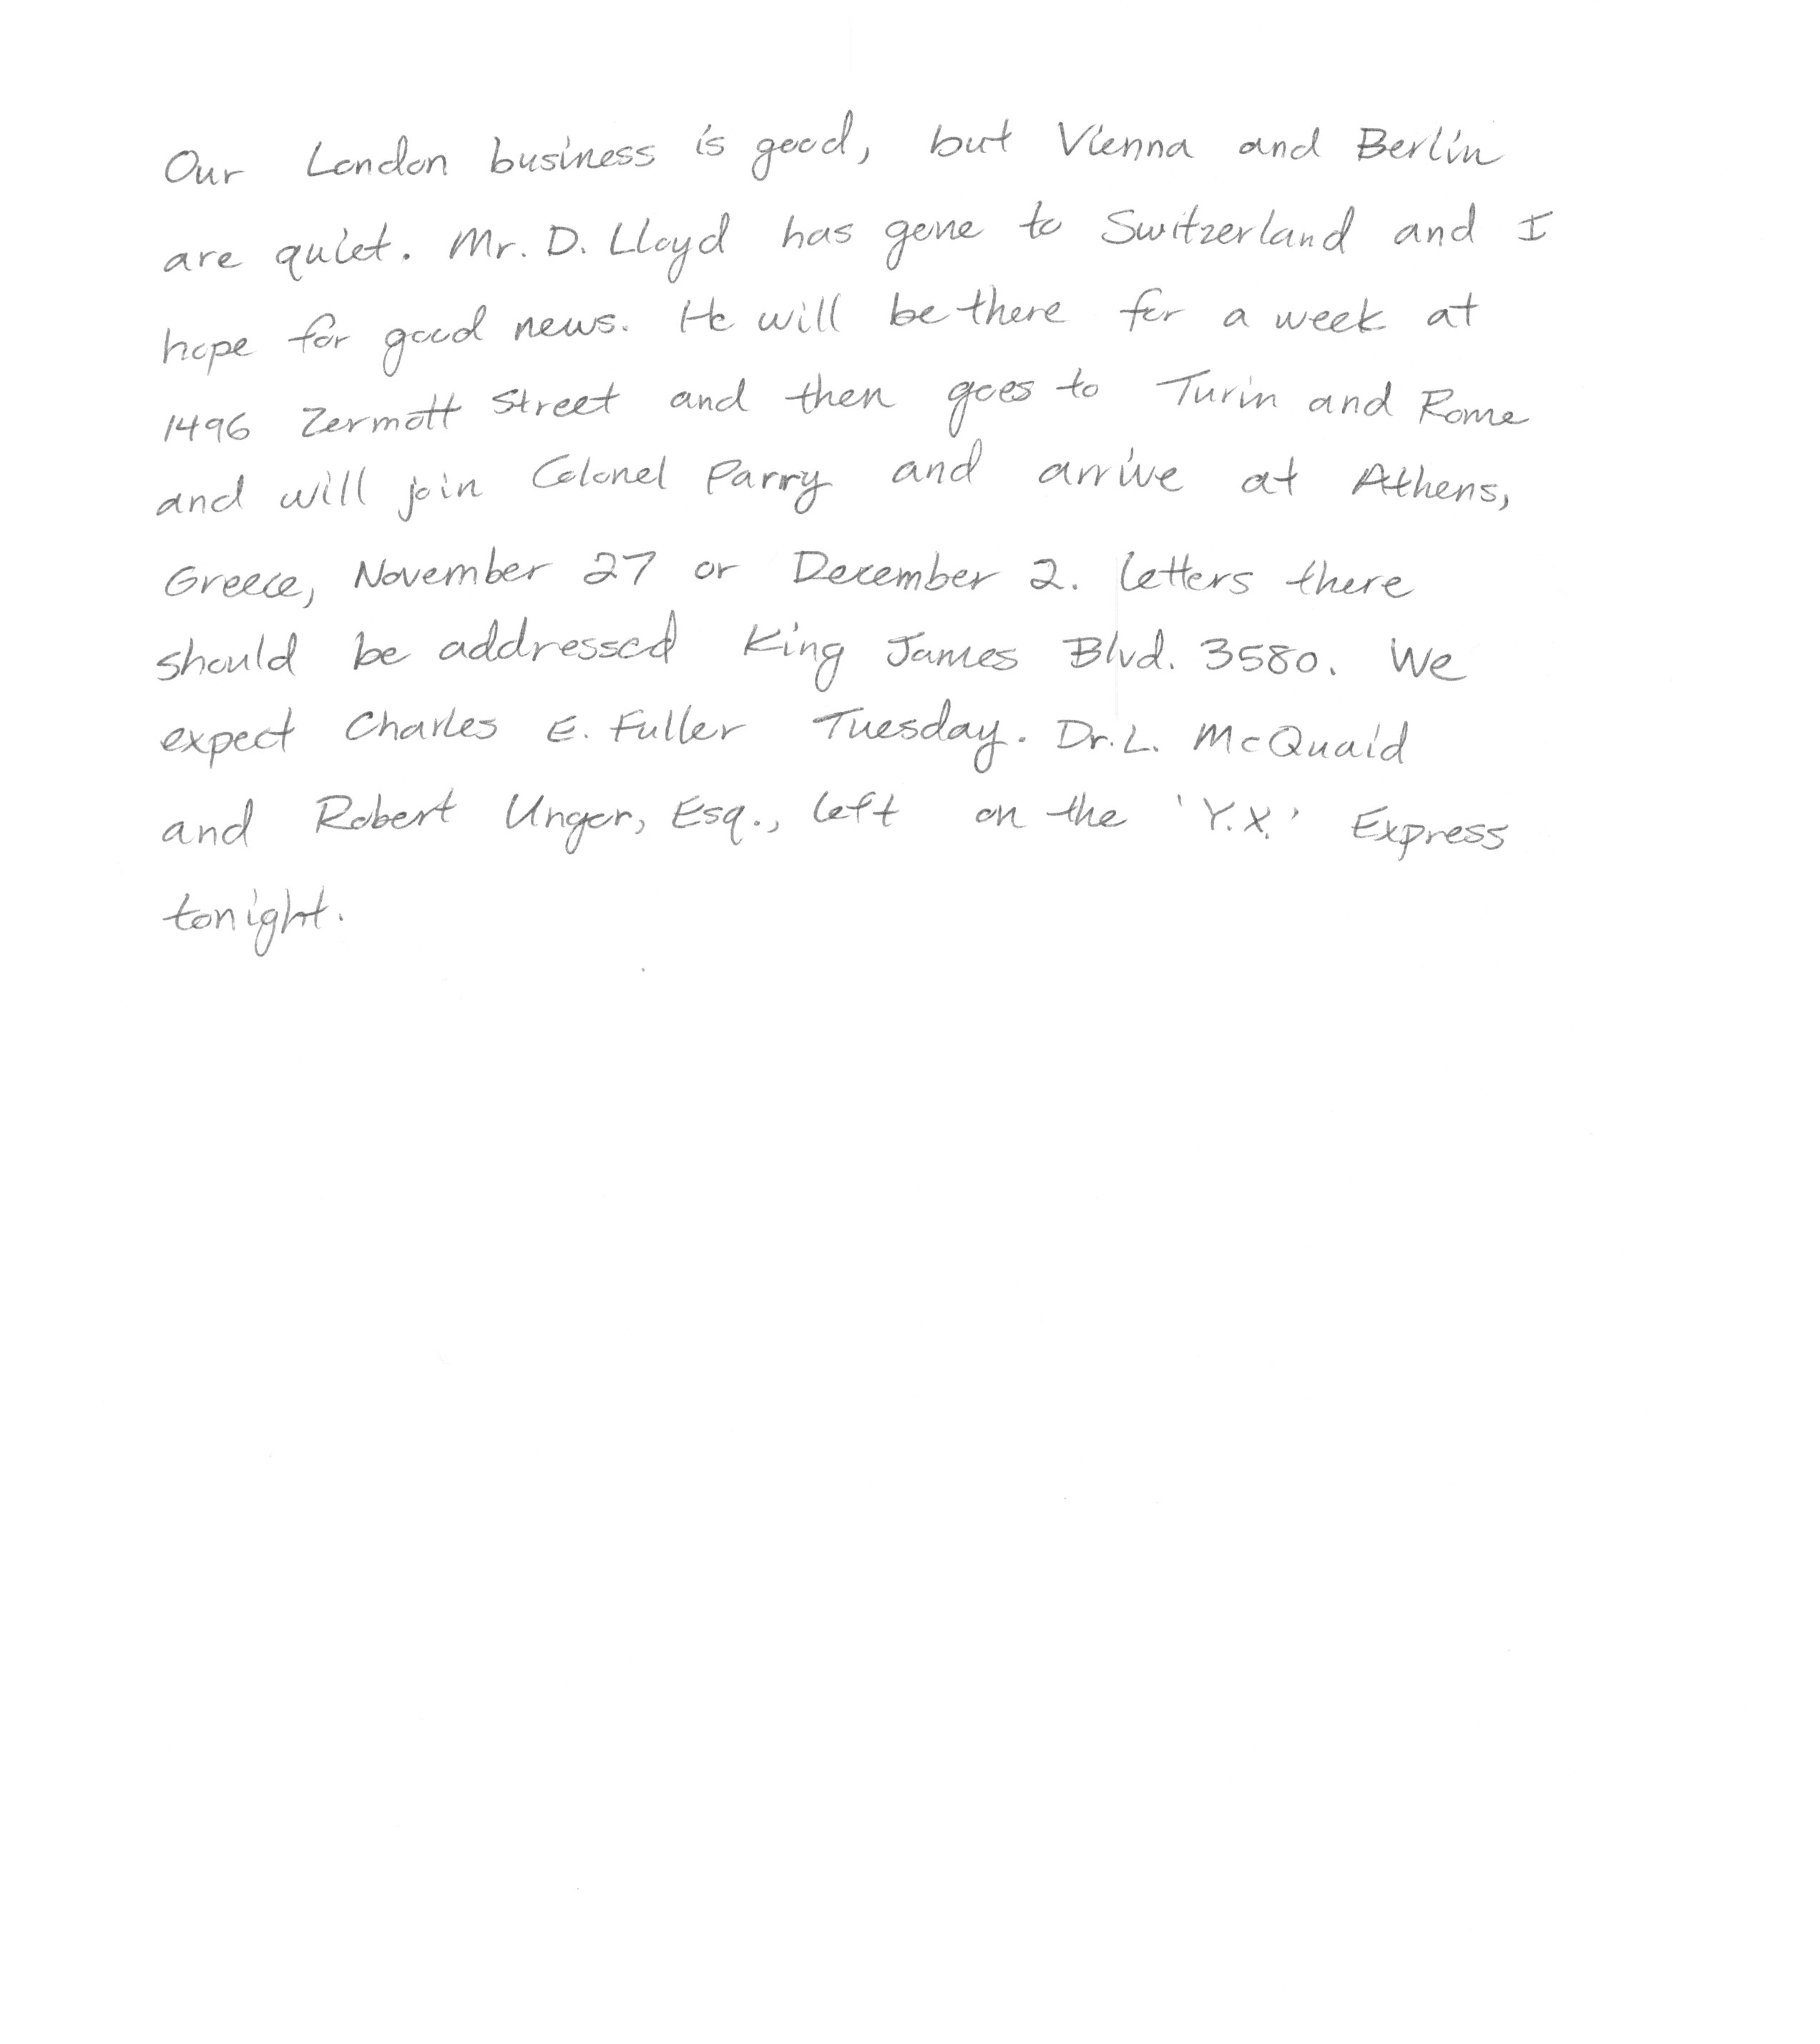 Our London business is good, but Vienna and Berlin
are quiet. Mr. D. Lloyd has gone to Switzerland and I
hope for good news. He will be there for a week at
1496 Zermott Street and then goes to Turin and Rome
and will join Colonel Parry and arrive at Athens,
Greece, November 27 or December 2. Letters there
should be addressed King James Blvd. 3580. We
expect Charles E. Fuller Tuesday. Dr. L. McQuaid
and Robert Unger, Esq., left on the 'Y.X.' Express
tonight.